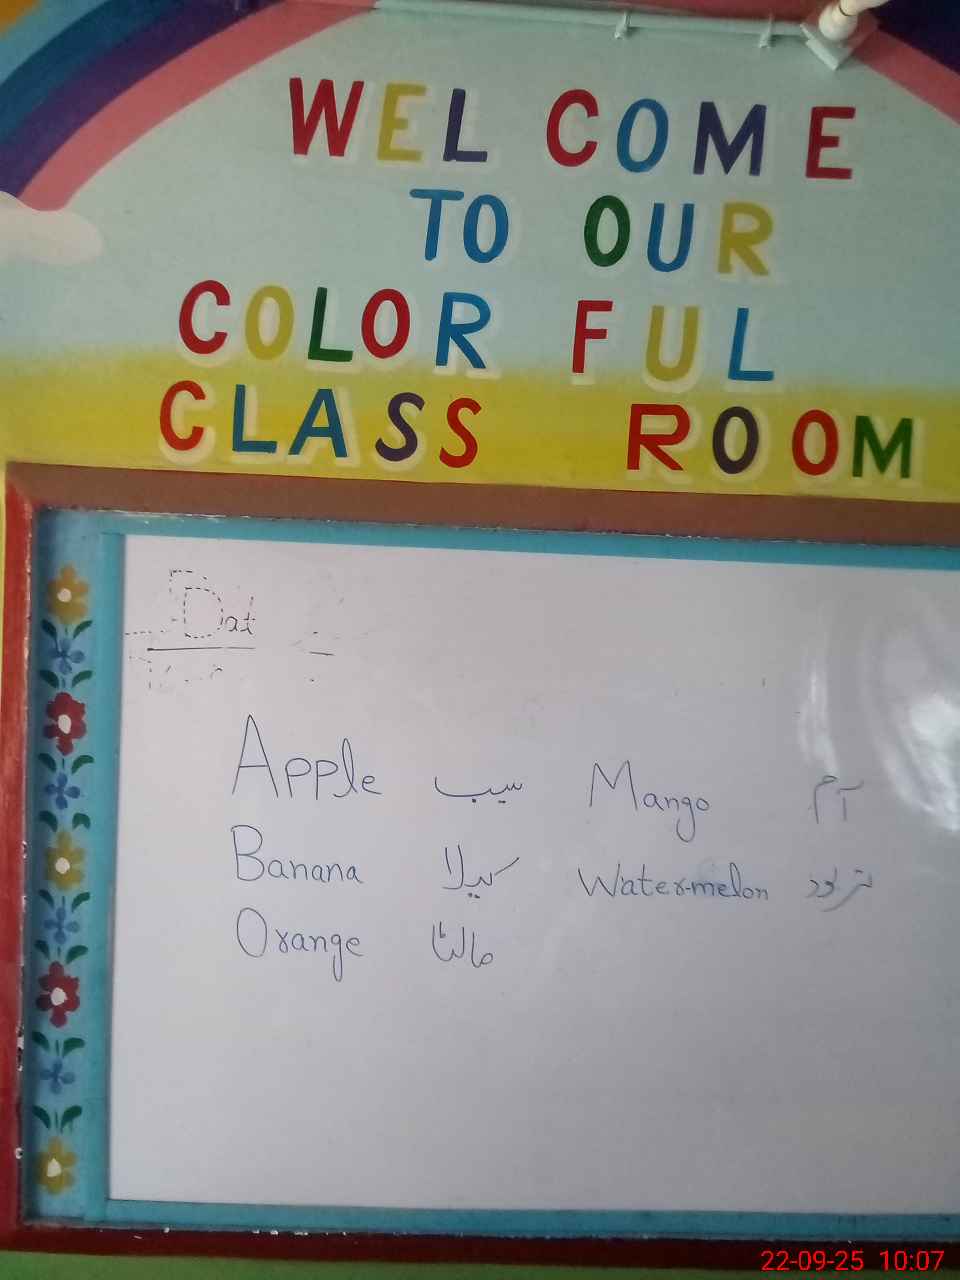 WELCOME
TO OUR
COLOR FUL
CLASS ROOM
Dat
Apple سیب Mango آم
Banana کیلا Water-melon
Orange مالٹا
22-09-25 10:07